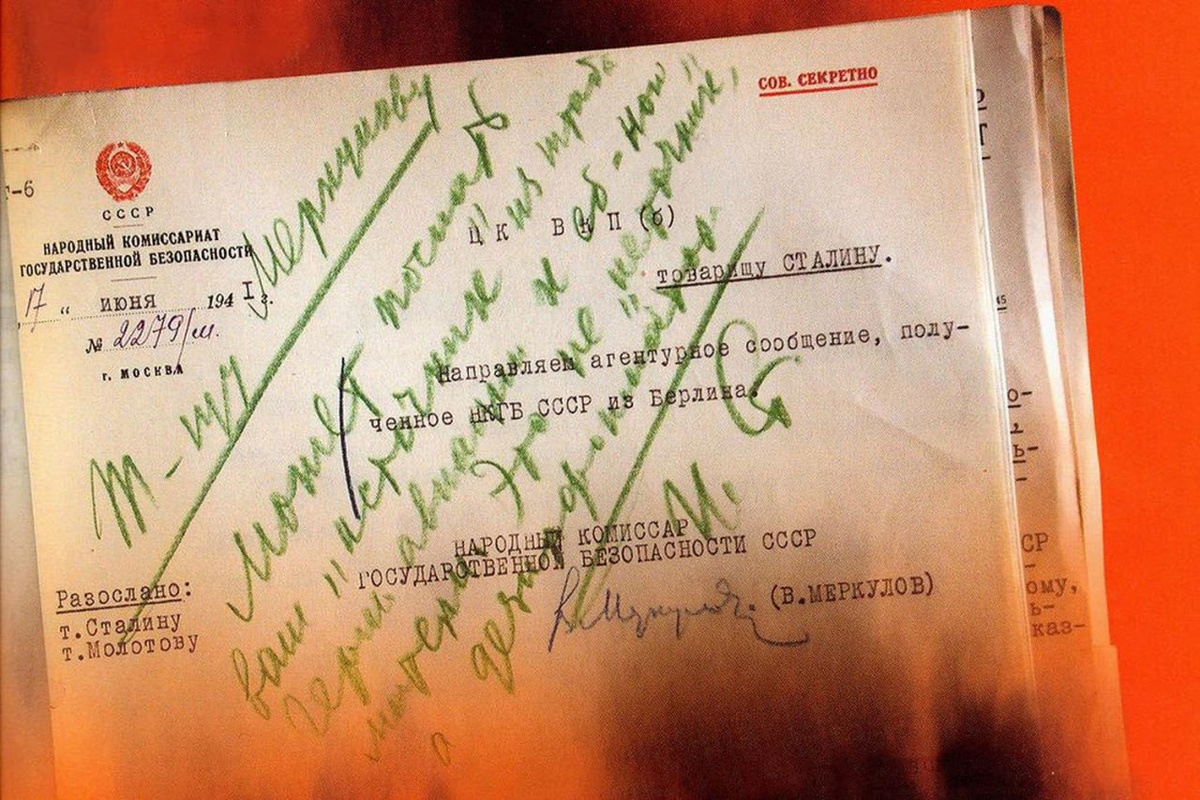 СОВ. СЕКРЕТНО
-6
СССР
НАРОДНЫЙ КОМИССАРИАТ
ГОСУДАРСТВЕННОЙ БЕЗОПАСНОСТИ
17 " ИЮНЯ 194 I г.
№ 2279/м.
г. МОСКВА
ЦК ВКП(б)
товарищу СТАЛИНУ.
Направляем агентурное сообщение, полу-
ченное НКГБ СССР из Берлина.
НАРОДНЫЙ КОМИССАР
ГОСУДАРСТВЕННОЙ БЕЗОПАСНОСТИ СССР
(В.МЕРКУЛОВ)
Разослано:
т.Сталину
т.Молотову
Т-щу Меркулову
Может послать
ваш "источник" из штаба
герм. авиации к еб-ной
матери. Это не "источник",
а дезинформатор.
И. Ст
о-
ь-
СР
ому,
ь-
каз-